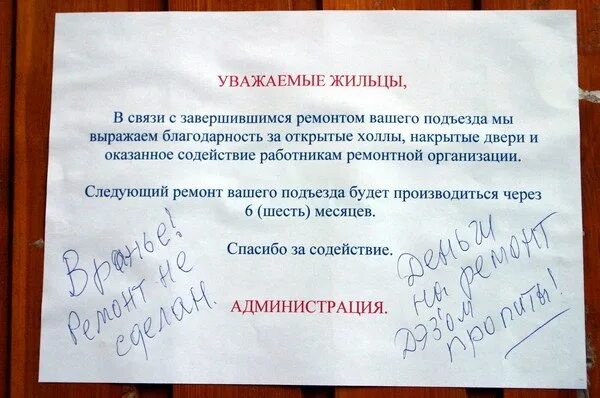 УВАЖАЕМЫЕ ЖИЛЬЦЫ,
В связи с завершившимся ремонтом вашего подъезда мы
выражаем благодарность за открытые холлы, накрытые двери и
оказанное содействие работникам ремонтной организации.
Следующий ремонт вашего подъезда будет производиться через
6 (шесть) месяцев.
Спасибо за содействие.
АДМИНИСТРАЦИЯ.
Вранье!
Ремонт не
сделан.
Деньги
ны ремонт
ДЭЗом
пропиты!